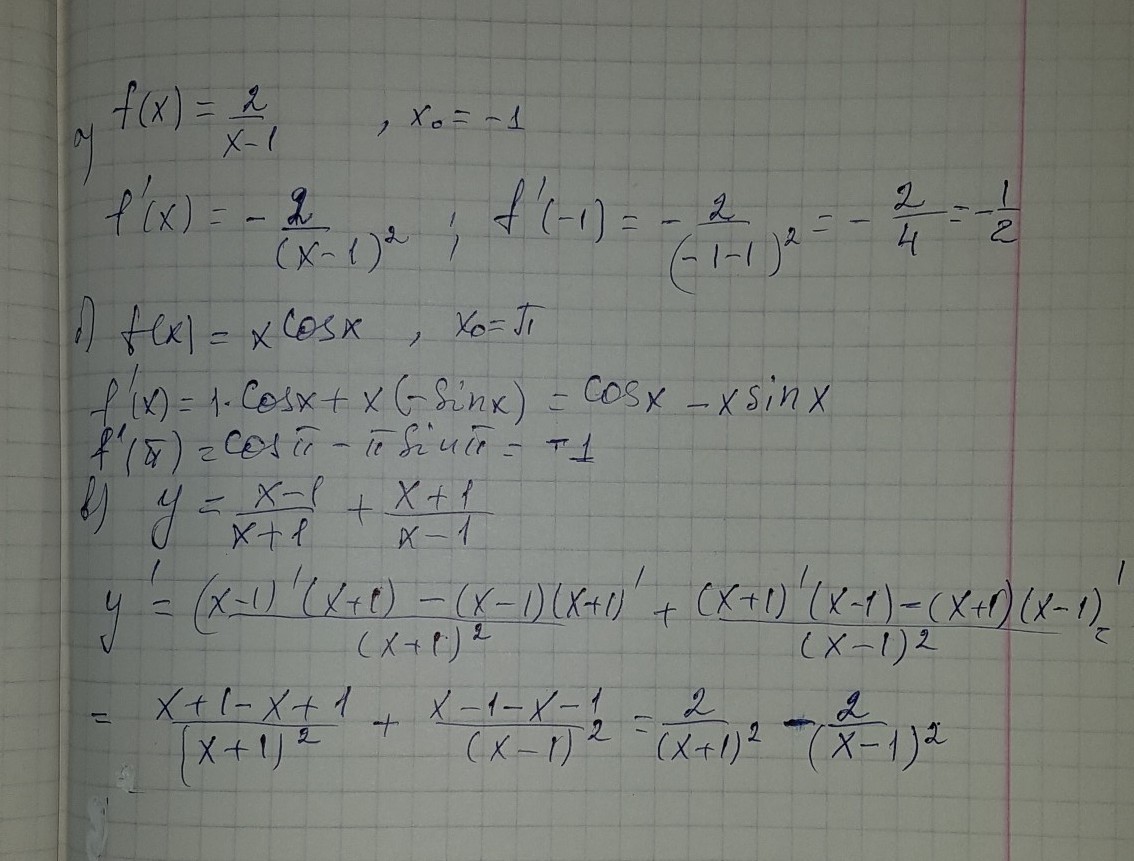 а) f(x) = 2/(x-1) , x₀ = -1
f'(x) = - 2/(x-1)² ; f'(-1) = - 2/(-1-1)² = - 2/4 = -1/2
б) f(x) = x cosx , x₀ = π
f'(x) = 1·cosx + x(-sinx) = cosx - x sinx
f'(π) = cosπ - π sinπ = -1
в) y = (x-1)/(x+1) + (x+1)/(x-1)
y' = ((x-1)'(x+1) - (x-1)(x+1)')/(x+1)² + ((x+1)'(x-1) - (x+1)(x-1)')/(x-1)² =
= (x+1-x+1)/(x+1)² + (x-1-x-1)/(x-1)² = 2/(x+1)² - 2/(x-1)²